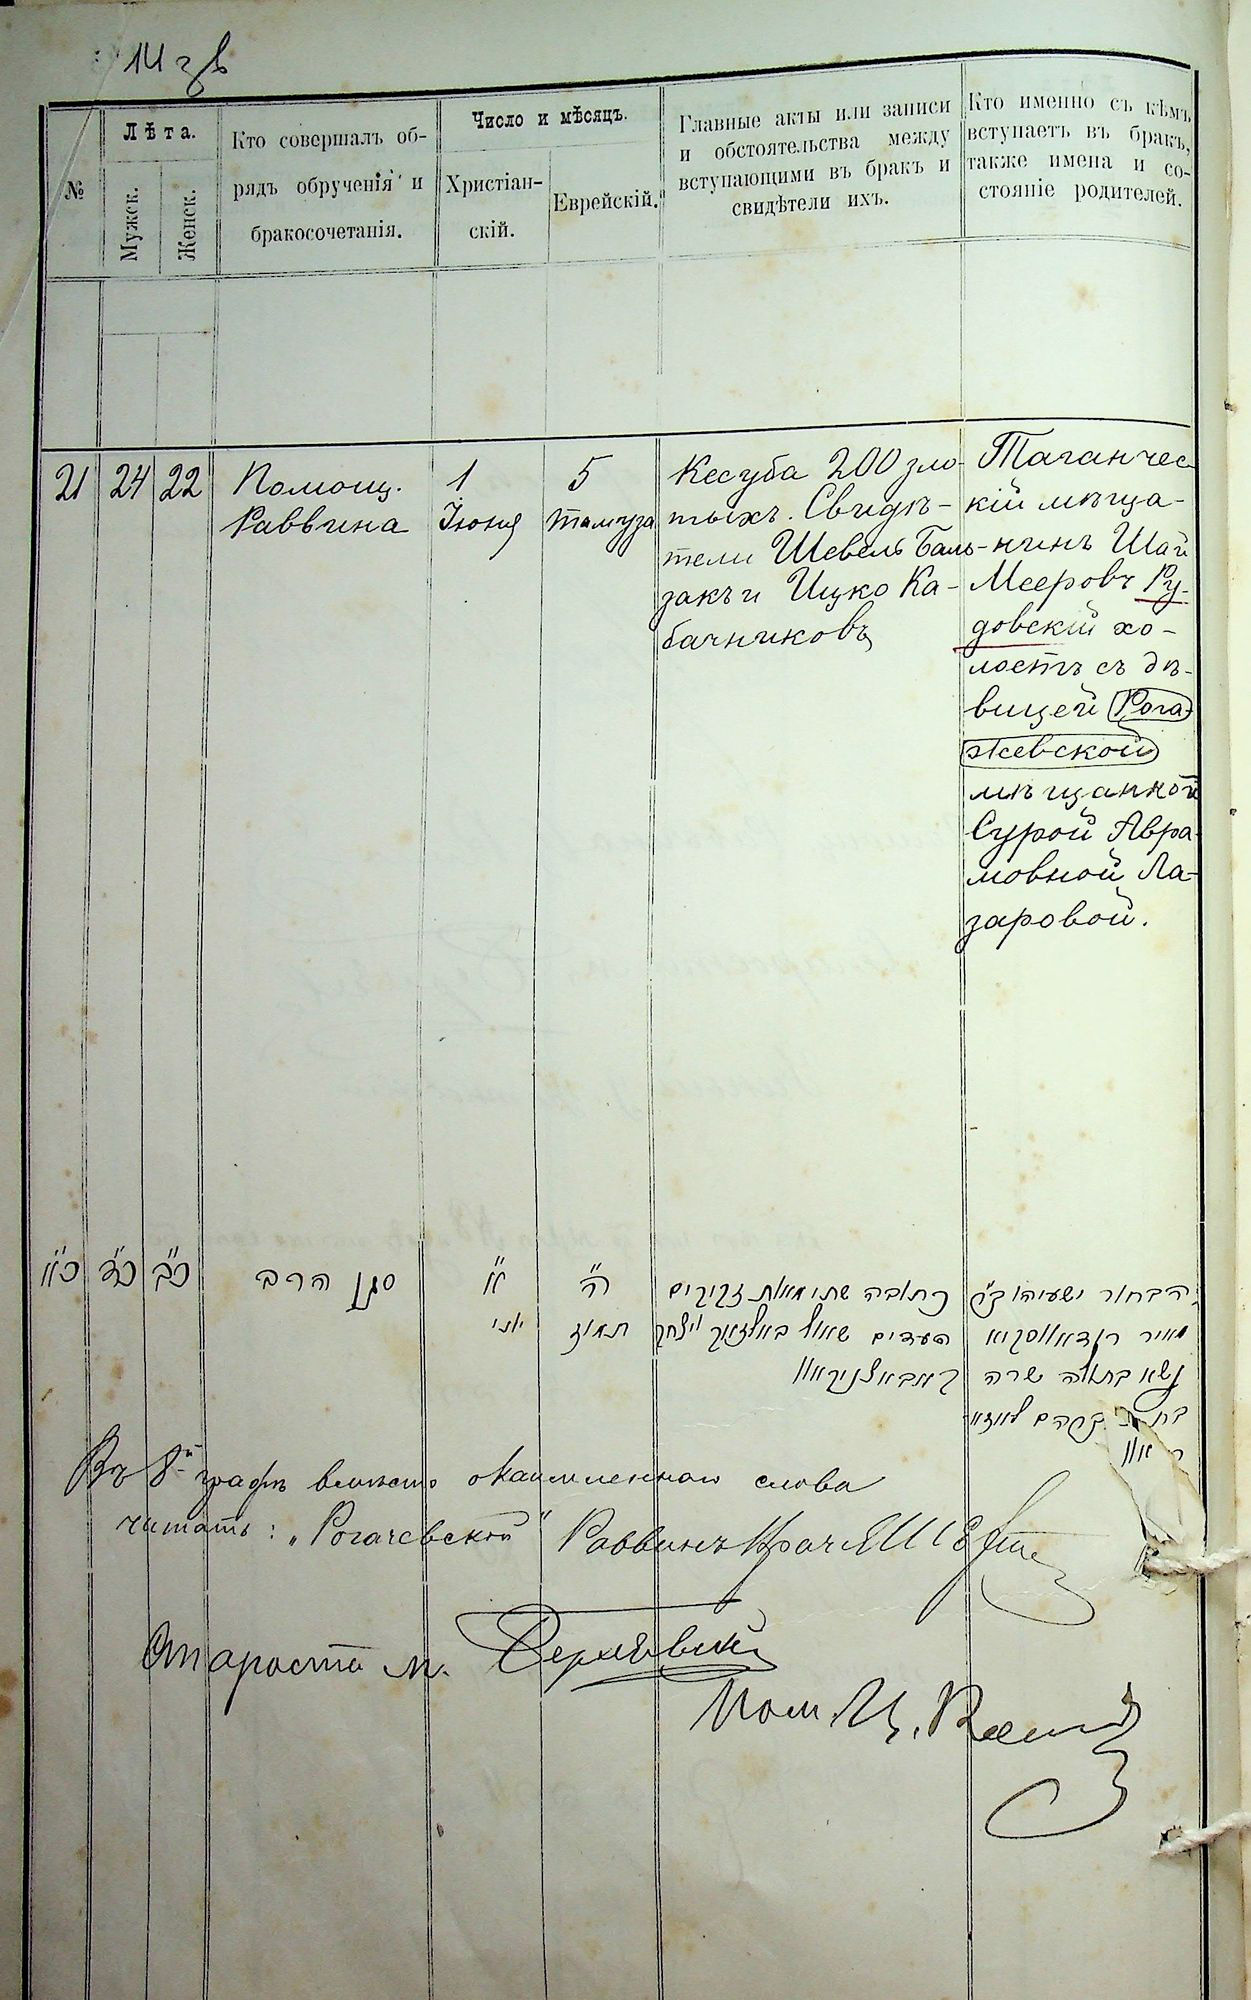 №
Лѣта.
Мужск.
Женск.
Кто совершалъ об-
рядъ обрученія и
бракосочетанія.
Число и мѣсяцъ.
Христіан-
скій.
Еврейскій.
Главные акты или записи
и обстоятельства между
вступающими въ бракъ и
свидѣтели ихъ.
Кто именно съ кѣмъ
вступаетъ въ бракъ,
также имена и со-
стояніе родителей.
21
24
22
Помощ.
Раввина
1
Іюня
5
тамуза
Кесуба 200 зло-
тыхъ. Свидѣ-
тели Шевель Баль-
закъ и Ицко Ка-
бачниковъ
Таганчес-
кій мѣща-
нинъ Шая
Мееровъ Ру-
довскій хо-
лостъ съ дѣ-
вицей Рога-
жевской
мѣщанкой
Сурой Авра-
мовной Ла-
заровой.
כ״א
כ״ד
כ״ב
סגן הרב
א״
יוני
ה״
תמוז
כתובה שתי מאות זקוקים
העדים שאול באלזאק ויצחק
קאבאצניקאוו
הבחור ישעיהו ב״ר
מאיר רודאווסקיא
נשא בתולה שרה
Въ 8й графѣ вмѣсто окаймленнаго слова
читать: „Рогачевской“ Раввинъ
Староста М.
Пом.